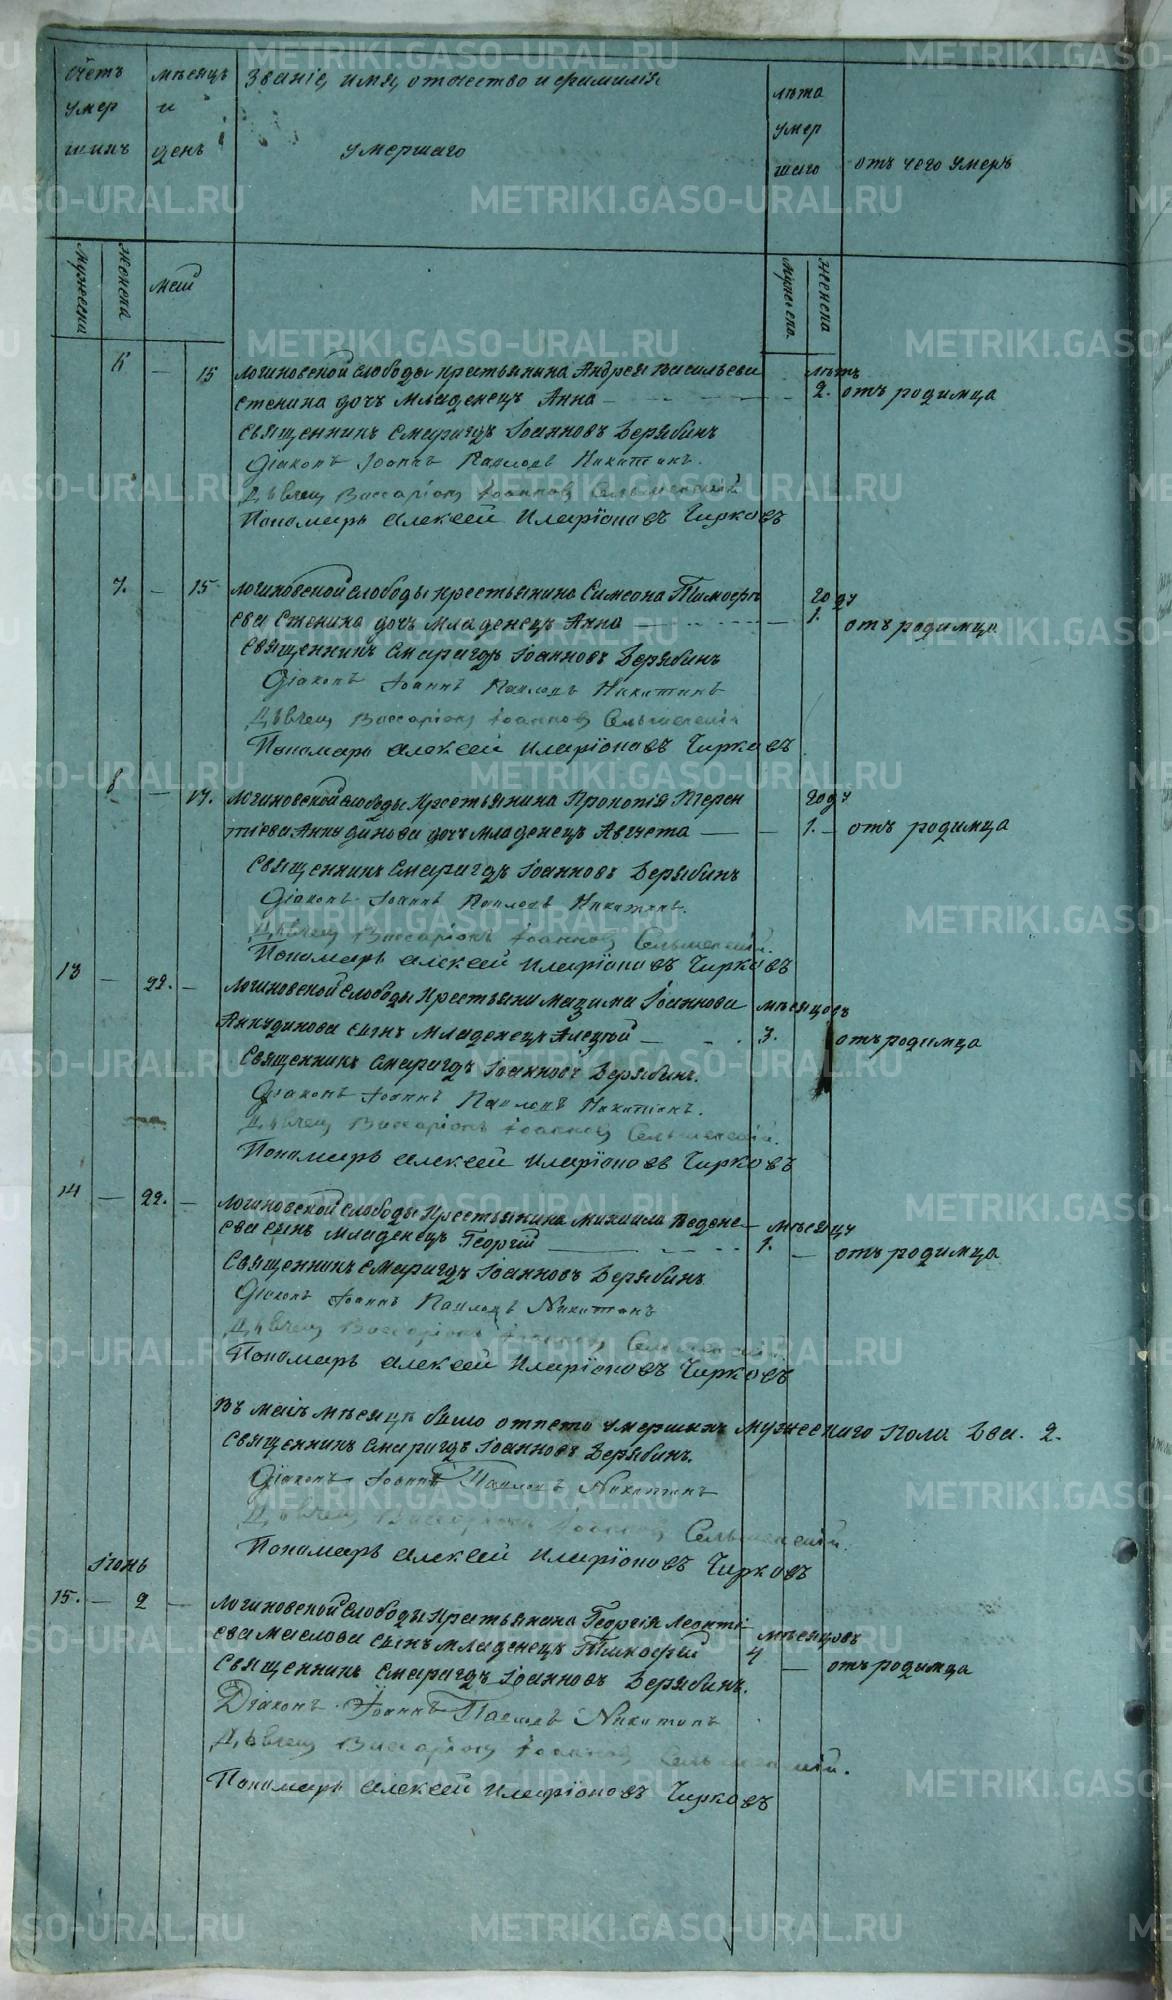 Счетъ мѣсяцъ Званіе, имя, отчество и фамилія лѣта
умер и умер
шихъ день умершаго шаго отъ чего умеръ
мужеска женска май мужеска женска
6 — 15 Логиновской слободы крестьянина Андрея Васильева лѣтъ
Стенина дочь младенецъ Анна — 2. отъ родимца
Священникъ Смарагдъ Іоанновъ Верябинъ
Діаконъ Іоаннъ Павловъ Никитинъ.
Дьячец Виссаріонъ Іоанновъ
Пономарь Алексей Иларіоновъ Чирковъ
7. — 15 Логиновской слободы крестьянина Симеона Тимофѣ году
ева Стенина дочь младенецъ Анна — 1. отъ родимца
Священникъ Смарагдъ Іоанновъ Верябинъ
Діаконъ Іоаннъ Павловъ Никитинъ
Дьячец Виссаріонъ Іоанновъ
Пономарь Алексей Иларіоновъ Чирковъ
8 — 17. Логиновской слободы крестьянина Прокопія Терен году
тіева Анкудинова дочь младенецъ Августа — — 1. — отъ родимца
Священникъ Смарагдъ Іоанновъ Верябинъ
Діаконъ Іоаннъ Павловъ Никитинъ.
Дьячец Виссаріонъ Іоанновъ
Пономарь Алексей Иларіоновъ Чирковъ
13 — 22. — Логиновской слободы крестьяни Максима Іоаннова мѣсяцовъ
Анкудинова сынъ младенецъ Алексѣй — 3. отъ родимца
Священникъ Смарагдъ Іоанновъ Верябинъ.
Діаконъ Іоаннъ Павловъ Никитинъ.
Дьячец Виссаріонъ Іоанновъ
Пономарь Алексей Иларіоновъ Чирковъ
14 — 22. — Логиновской слободы крестьянина Михаила мѣсяцу
ева сынъ младенецъ Георгій — 1. — отъ родимца
Священникъ Смарагдъ Іоанновъ Верябинъ
Діаконъ Іоаннъ Павловъ Никитинъ
Дьячец Виссаріонъ Іоанновъ
Пономарь Алексей Иларіоновъ Чирковъ
Въ маіѣ мѣсяцѣ было отпето умершихъ мужескаго пола Два. 2.
Священникъ Смарагдъ Іоанновъ Верябинъ.
Діаконъ Іоаннъ Павловъ Никитинъ
Дьячец Виссаріонъ Іоанновъ
Пономарь Алексей Иларіоновъ Чирковъ
Іюнь
15. — 2 — Логиновской слободы крестьянина Георгія Леонті-
ева Маслова сынъ младенецъ Тимофей мѣсяцовъ 4 — отъ родимца
Священникъ Смарагдъ Іоанновъ Верябинъ.
Діаконъ Іоаннъ Павловъ Никитинъ
Дьячец Виссаріонъ Іоанновъ
Пономарь Алексей Иларіоновъ Чирковъ
METRIKI.GASO-URAL.RU